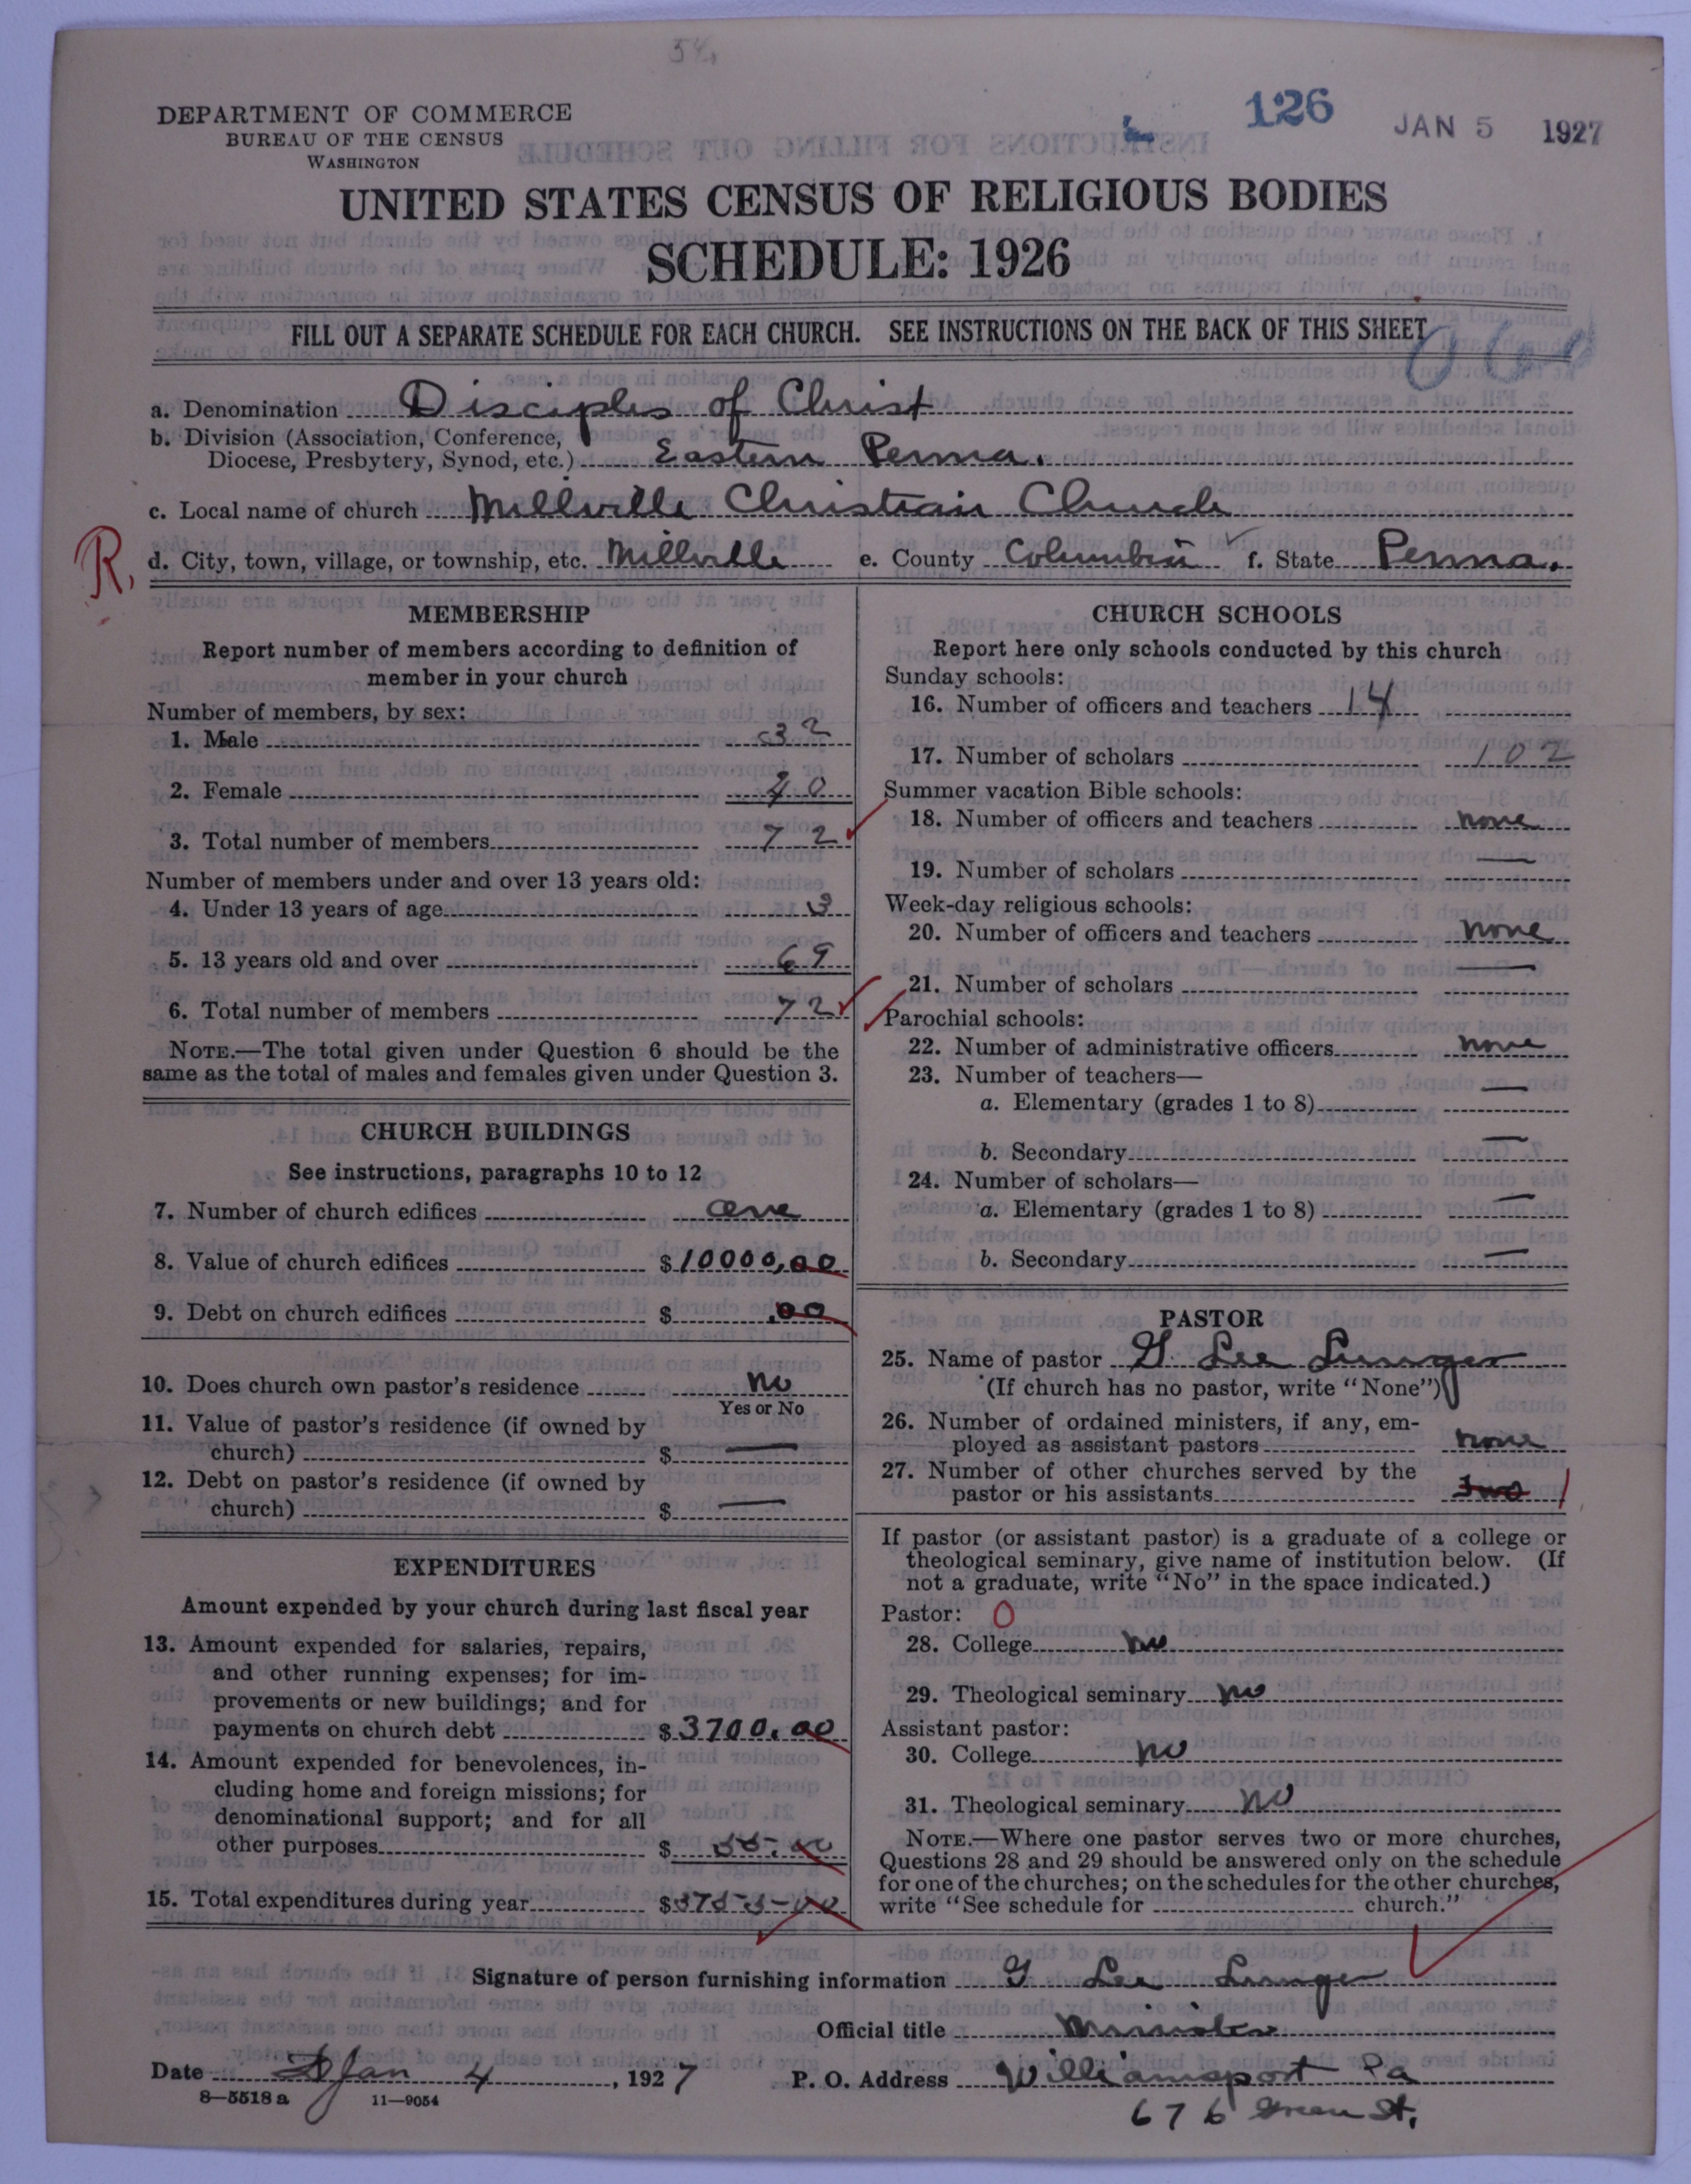 54.
DEPARTMENT OF COMMERCE
BUREAU OF THE CENSUS
WASHINGTON
126
JAN 5 1927
UNITED STATES CENSUS OF RELIGIOUS BODIES
SCHEDULE: 1926
FILL OUT A SEPARATE SCHEDULE FOR EACH CHURCH. SEE INSTRUCTIONS ON THE BACK OF THIS SHEET
a. Denomination Disciples of Christ
b. Division (Association, Conference,
Diocese, Presbytery, Synod, etc.) Eastern Penna.
c. Local name of church Millville Christian Church
R. d. City, town, village, or township, etc. Millville e. County Columbia f. State Penna.
MEMBERSHIP
Report number of members according to definition of
member in your church
Number of members, by sex:
1. Male 32
2. Female 40
3. Total number of members 72
Number of members under and over 13 years old:
4. Under 13 years of age 3
5. 13 years old and over 69
6. Total number of members 72
NOTE.—The total given under Question 6 should be the
same as the total of males and females given under Question 3.
CHURCH BUILDINGS
See instructions, paragraphs 10 to 12
7. Number of church edifices one
8. Value of church edifices $10000.00
9. Debt on church edifices $ .00
10. Does church own pastor's residence no
Yes or No
11. Value of pastor's residence (if owned by
church) $ —
12. Debt on pastor's residence (if owned by
church) $ —
EXPENDITURES
Amount expended by your church during last fiscal year
13. Amount expended for salaries, repairs,
and other running expenses; for im-
provements or new buildings; and for
payments on church debt $3700.00
14. Amount expended for benevolences, in-
cluding home and foreign missions; for
denominational support; and for all
other purposes $ 55.00
15. Total expenditures during year $3755.00
CHURCH SCHOOLS
Report here only schools conducted by this church
Sunday schools:
16. Number of officers and teachers 14
17. Number of scholars 102
Summer vacation Bible schools:
18. Number of officers and teachers none
19. Number of scholars —
Week-day religious schools:
20. Number of officers and teachers none
21. Number of scholars —
Parochial schools:
22. Number of administrative officers none
23. Number of teachers—
a. Elementary (grades 1 to 8) —
b. Secondary —
24. Number of scholars—
a. Elementary (grades 1 to 8) —
b. Secondary —
PASTOR
25. Name of pastor G. Lee
(If church has no pastor, write "None")
26. Number of ordained ministers, if any, em-
ployed as assistant pastors none
27. Number of other churches served by the
pastor or his assistants two 1
If pastor (or assistant pastor) is a graduate of a college or
theological seminary, give name of institution below. (If
not a graduate, write "No" in the space indicated.)
Pastor: O
28. College no
29. Theological seminary no
Assistant pastor:
30. College no
31. Theological seminary no
NOTE.—Where one pastor serves two or more churches,
Questions 28 and 29 should be answered only on the schedule
for one of the churches; on the schedules for the other churches,
write "See schedule for church."
Signature of person furnishing information G Lee
Official title Minister
Date Jan 4, 1927 P. O. Address Williamsport Pa
8—5518 a 11—9054
676 Green St.